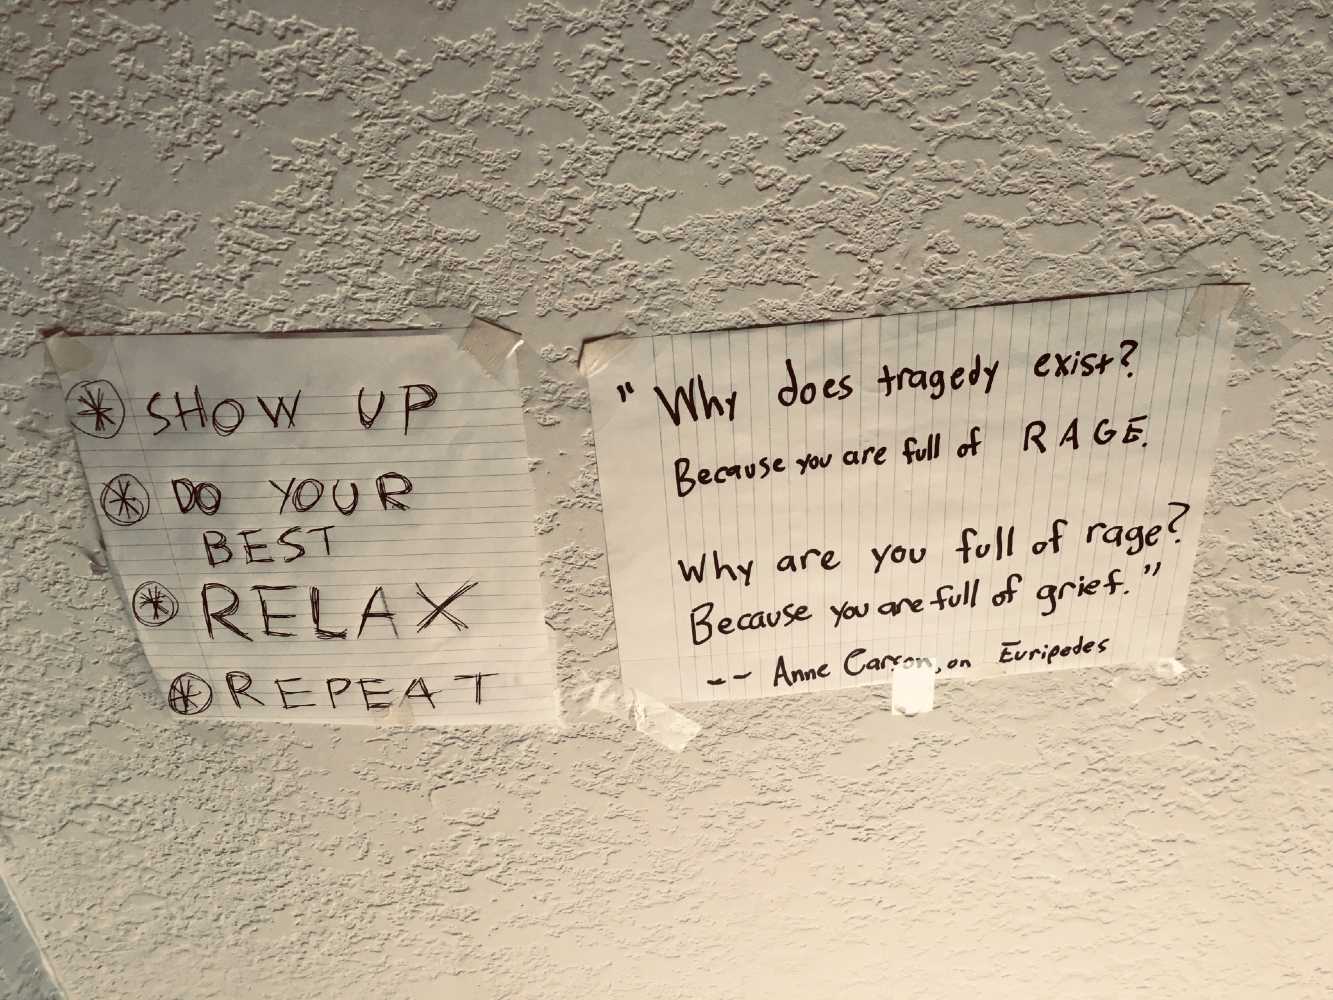 SHOW UP
DO YOUR
BEST
RELAX
REPEAT
"Why does tragedy exist?
Because you are full of RAGE.
Why are you full of rage?
Because you are full of grief."
-- Anne Carson, on Euripedes